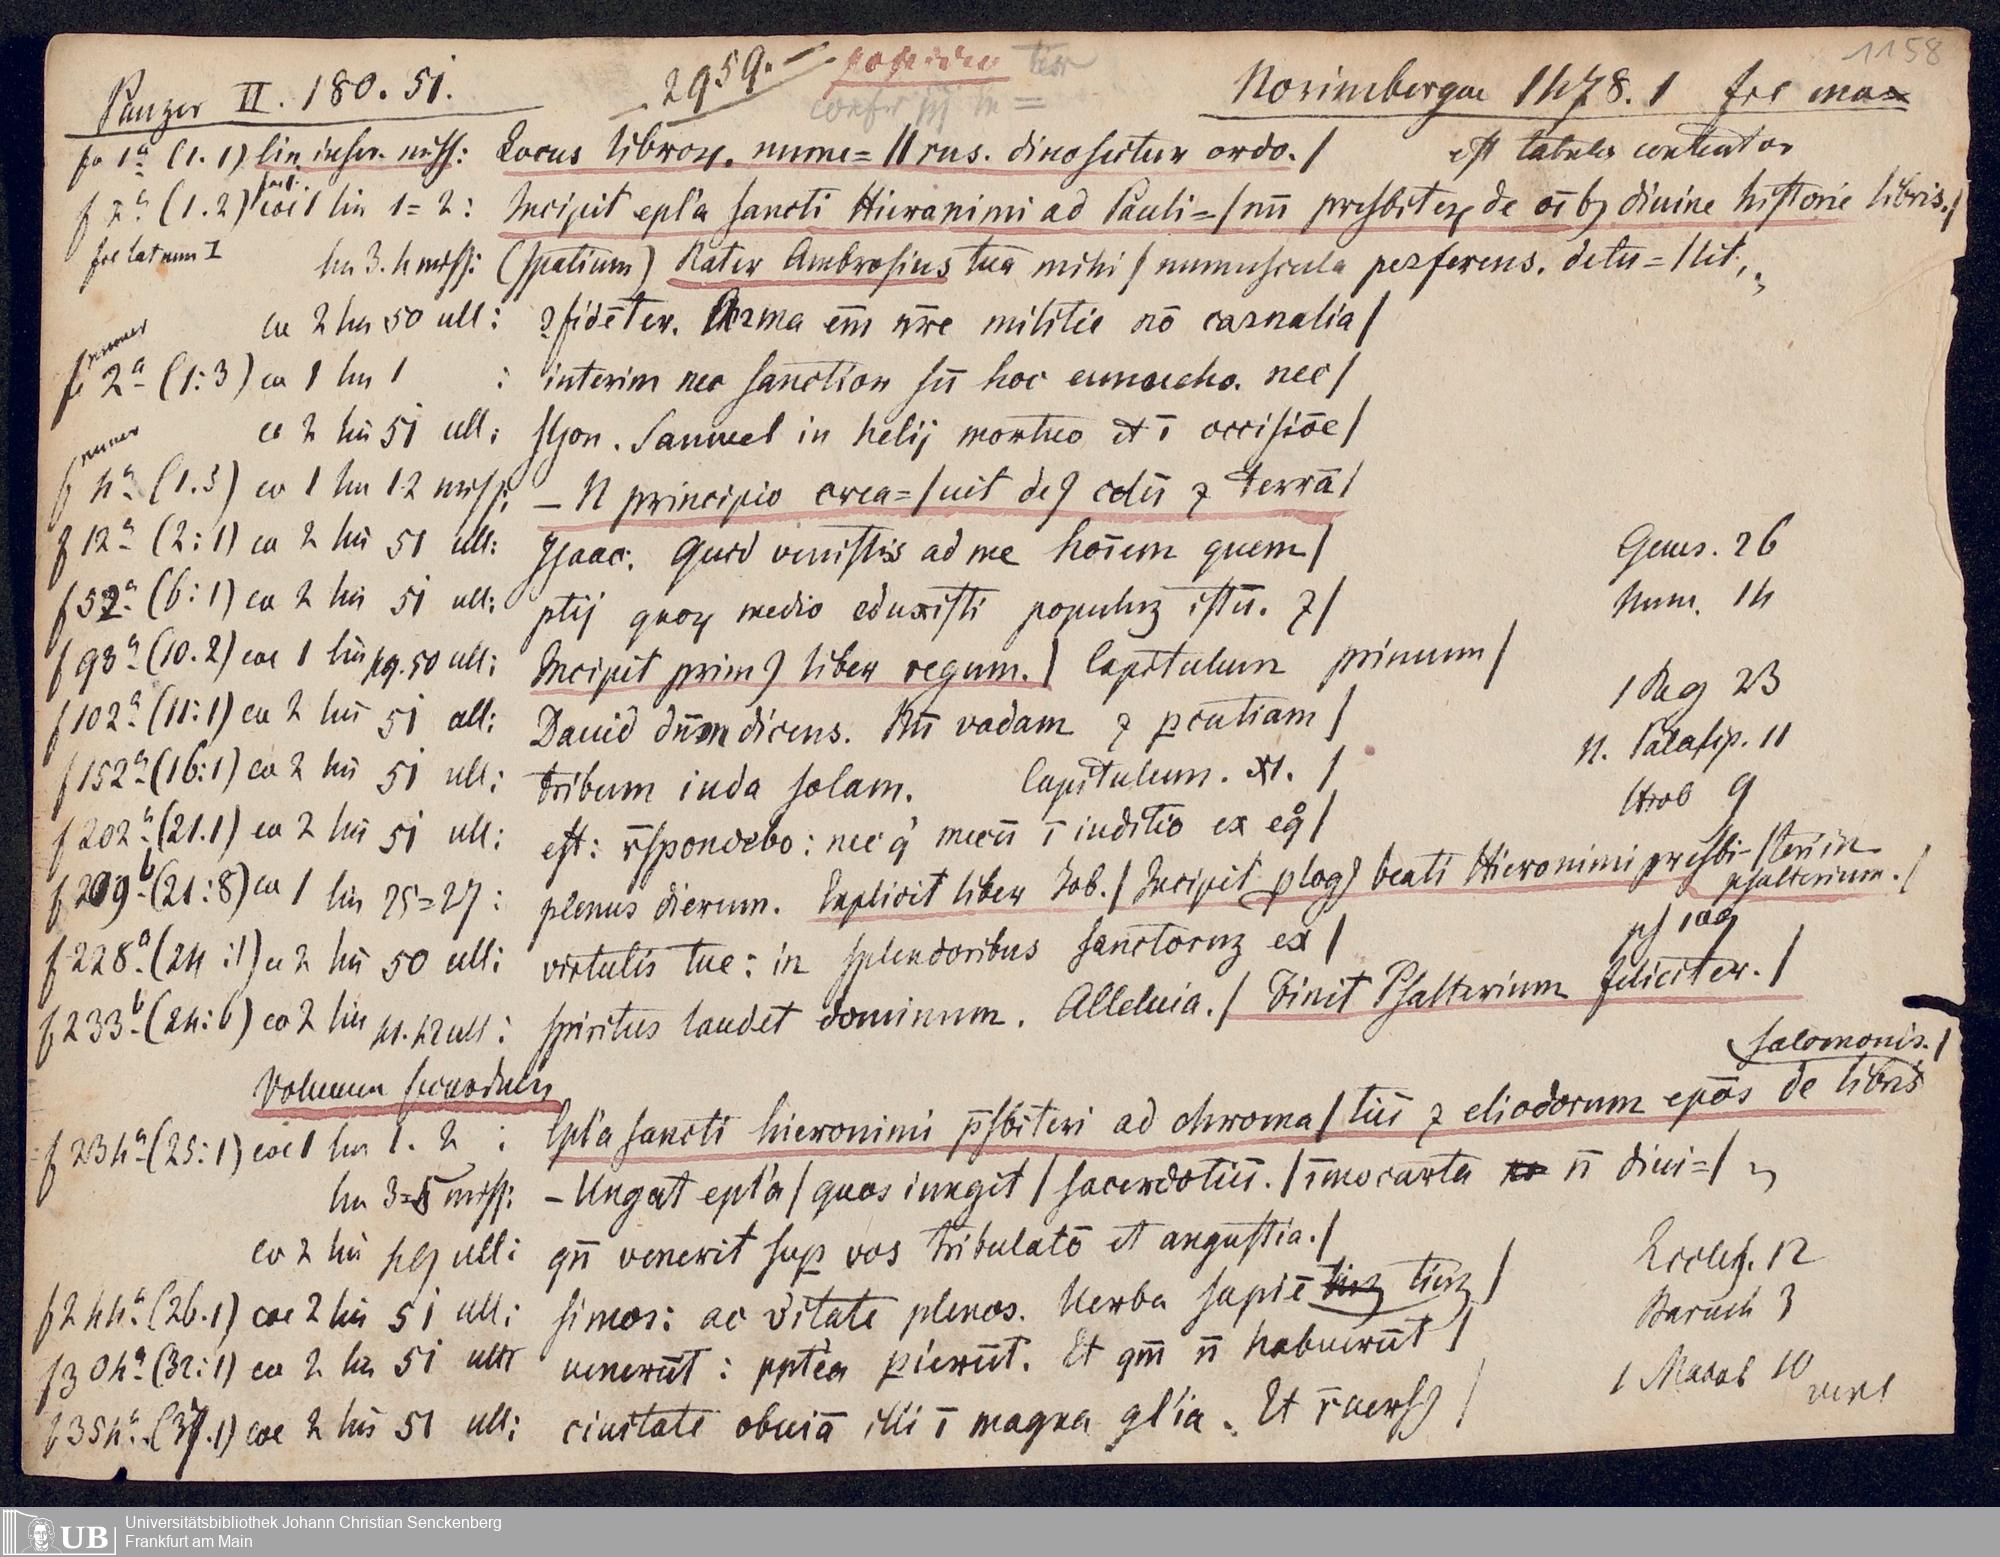 1158
Panzer II. 180. 51. 2959. Norimbergae 1478. 1 fol max
fo 1a (1. 1) lin infer. miss: Locus librorꝝ. nume= // rus. dinoscitur ordo. / est tabula contentor
f 2a (1. 2) col 1 lin 1=2: Incipit epl'a sancti Hieronimi ad Pauli= / nū presbiterꝝ de oībꝫ diuine historie libris. /
fol lat num I lin 3. 4 miss: (spatium) Rater Ambrosius tua mihi / numuscula perferens. detu= / lit,
co 2 lin 50 ull: ꝯfidēter. Arma em̄ nr̄e militie nō carnalia /
numer
f 2a (1:3) co 1 lin 1 : interim nec sanctior sū hoc eunucho. nec /
co 2 lin 51 ull: Syon. Samuel in helij mortuo et ī occisiōe /
numer
f 4a (1.5) co 1 lin 1.2 miss: – N principio crea= / uit deꝰ celū ⁊ terrā /
f 12a (2:1) co 2 lin 51 ull: Ysaac. Quid venistis ad me hoīem quem / Genes. 26
f 52a (6:1) co 2 lin 51 ull: ptij quoꝝ medio eduxisti populuꝫ istū. ⁊ / Num. 14
f 93a (10. 2) col 1 lin 49. 50 ull: Incipit primꝰ liber regum. / Capitulum primum /
f 102a (11:1) co 2 lin 51 ull: Dauid dūm dicens. Nū vadam ⁊ ꝑcutiam / 1 Reg 23
f 152a (16:1) co 2 lin 51 ull: tribum iuda solam. Capitulum. XI. / II. Paralip. 11
f 202a (21.1) co 2 lin 51 ull: est: r̄spondebo: nec q' mecū ī iuditio ex eq̊ / Hiob 9
f 209b (21:8) co 1 lin 25=27: plenus dierum. Explicit liber Iob. / Incipit ꝓlogꝰ beati Hieronimi presbi- / teri in
psalterium. /
f 228a (24:1) co 2 lin 50 ull: virtutis tue: in splendoribus sanctoruꝫ ex / ps 109
f 233b (24:6) co 2 lin 41. 42 ull: spiritus laudet dominum. Alleluia. / Finit Psalterium feliciter. /
Volumen secundum salomonis. /
f 234a (25:1) col 1 lin 1. 2 : Epl'a sancti hieronimi p̄sbiteri ad chroma / tiū ⁊ eliodorum epōs de libris
lin 3=5 miss: – Ungat epl'a / quos iungit / sacerdotiū. / īmo carta nō diui= /
co 2 lin 49 ull: qn̄ venerit sup vos tribulatō et angustia. /
f 244a (26.1) col 2 lin 51 ull: simos: ac v'itate plenos. Uerba sapiē tiuꝫ / Eccles. 12
f 304a (32:1) co 2 lin 51 ull venerūt: ꝓpt'ea ꝑierūt. Et qm̄ nō habuerūt / Baruch 3
f 354a (37.1) col 2 lin 51 ull: ciuitate obuiā illi ī magna gl'ia. Et r̄uersꝰ / 1 Macab 10
UB Universitätsbibliothek Johann Christian Senckenberg
Frankfurt am Main